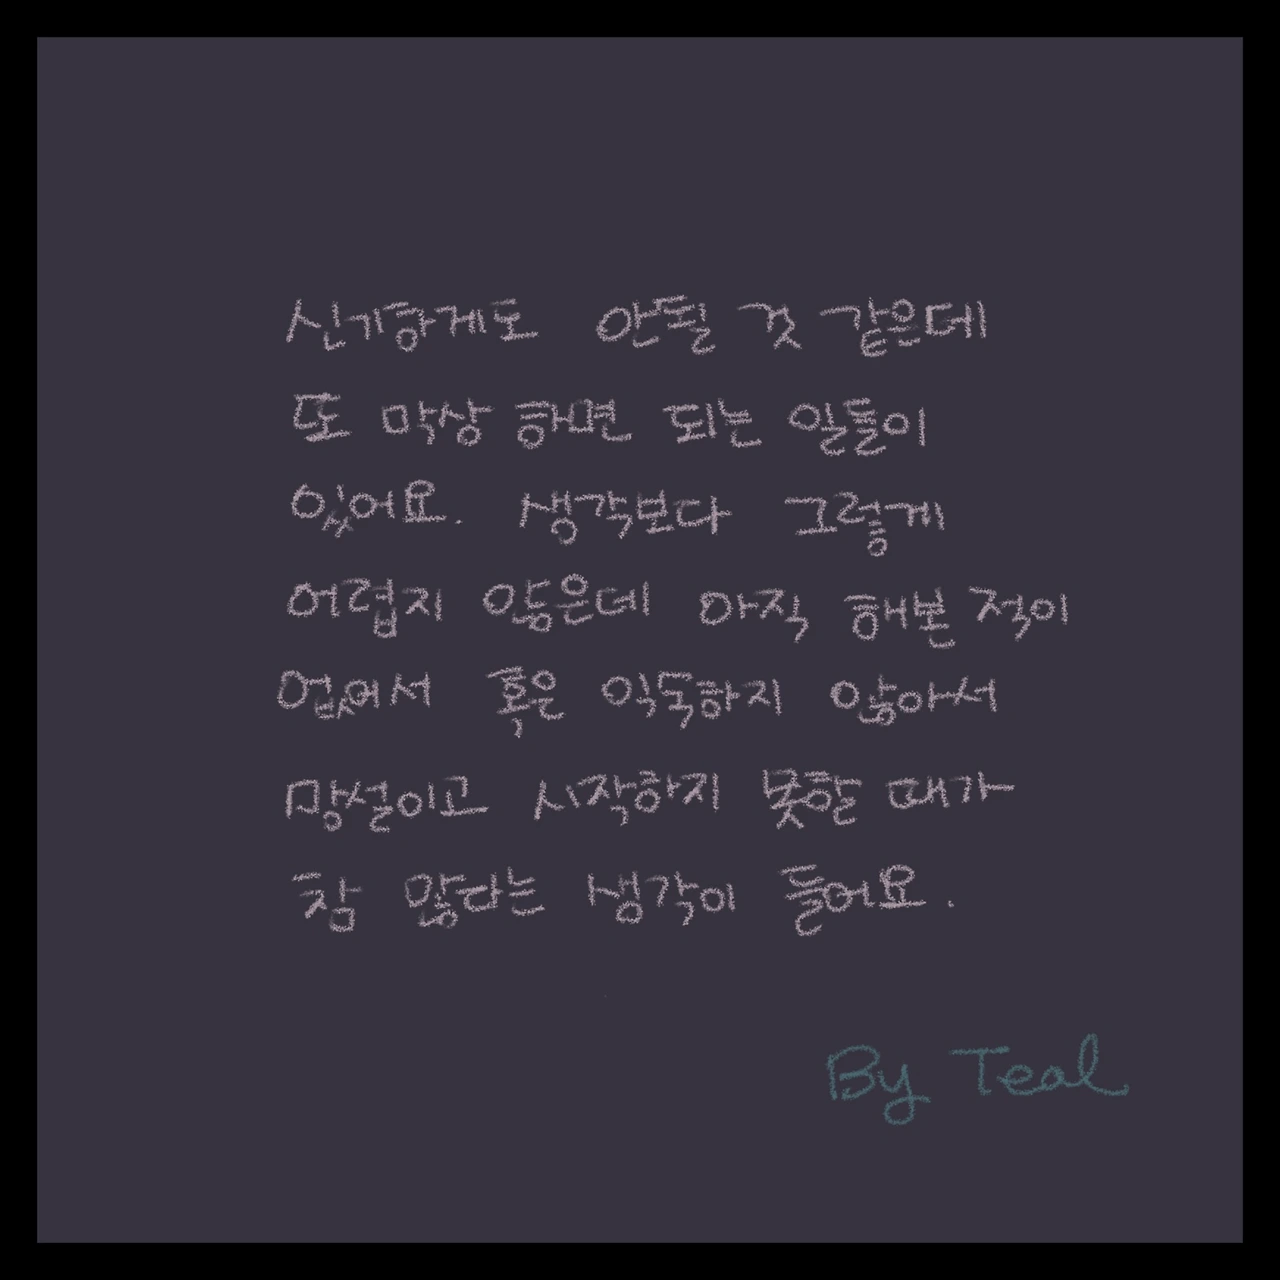 신기하게도 안될 것 같은데
또 막상 하면 되는 일들이
있어요. 생각보다 그렇게
어렵지 않은데 아직 해본 적이
없어서 혹은 익숙하지 않아서
망설이고 시작하지 못할 때가
참 많다는 생각이 들어요.
By Teal